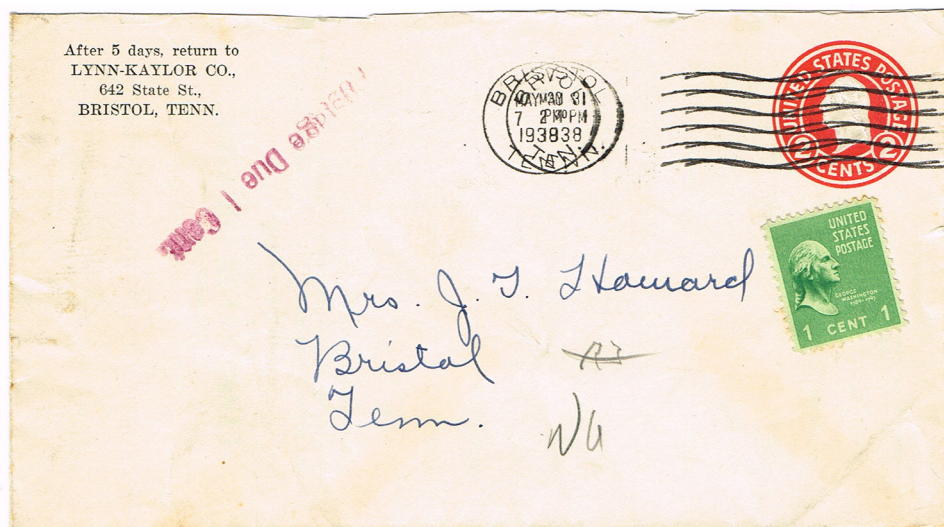 After 5 days, return to
LYNN-KAYLOR CO.,
642 State St.,
BRISTOL, TENN.
Postage Due 1 Cent
BRISTOL
MAY 31
PM
1938
TENN.
UNITED STATES POSTAGE
2 CENTS 2
UNITED
STATES
POSTAGE
GEORGE
WASHINGTON
1 CENT 1
Mrs. J. T. Howard
Bristol
Tenn.